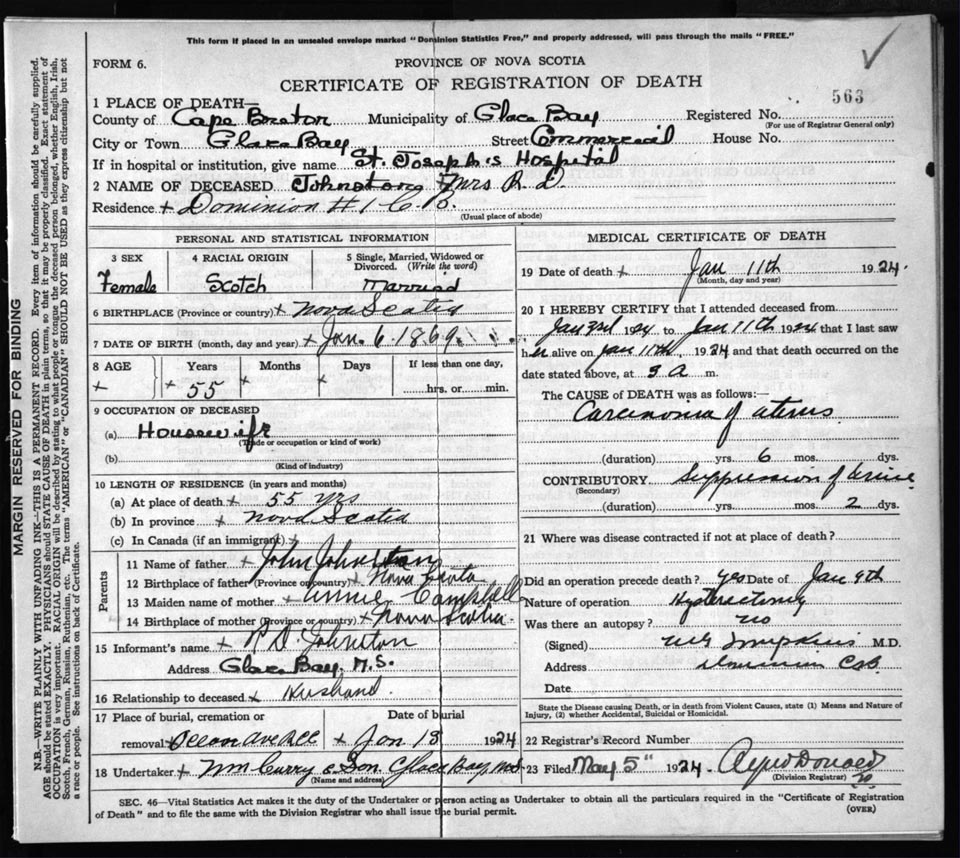 This form if placed in an unsealed envelope marked "Dominion Statistics Free," and properly addressed, will pass through the mails "FREE."
FORM 6. PROVINCE OF NOVA SCOTIA
CERTIFICATE OF REGISTRATION OF DEATH
563
1 PLACE OF DEATH—
County of Cape Breton Municipality of Glace Bay Registered No.
(For use of Registrar General only)
City or Town Glace Bay Street Commercial House No.
If in hospital or institution, give name St. Joseph's Hospital
2 NAME OF DECEASED Johnston Mrs R. D.
Residence + Dominion #1 C. B.
(Usual place of abode)
PERSONAL AND STATISTICAL INFORMATION
3 SEX 4 RACIAL ORIGIN 5 Single, Married, Widowed or Divorced. (Write the word)
Female Scotch Married
6 BIRTHPLACE (Province or country) + Nova Scotia
7 DATE OF BIRTH (month, day and year) + Jan. 6. 1869.
8 AGE Years Months Days If less than one day,
+ 55 + + hrs. or min.
9 OCCUPATION OF DECEASED
(a) Housewife
(Trade or occupation or kind of work)
(b)
(Kind of industry)
10 LENGTH OF RESIDENCE (in years and months)
(a) At place of death + 55 yrs
(b) In province + Nova Scotia
(c) In Canada (if an immigrant) +
Parents
11 Name of father + John Johnston
12 Birthplace of father (Province or country) + Nova Scotia
13 Maiden name of mother + Annie Campbell
14 Birthplace of mother (Province or country) + Nova Scotia
15 Informant's name + R D. Johnston
Address Glace Bay. N.S.
16 Relationship to deceased + Husband.
17 Place of burial, cremation or Date of burial
removal + + Jan 13 1924
18 Undertaker + Wm Curry & Son Glace Bay,
(Name and address)
MEDICAL CERTIFICATE OF DEATH
19 Date of death + Jan 11th 1924.
(Month, day and year)
20 I HEREBY CERTIFY that I attended deceased from
1924 to Jan 11th 1924 that I last saw
her alive on Jan 11th, 1924 and that death occurred on the
date stated above, at a m.
The CAUSE of DEATH was as follows:—
Carcinoma of uterus
(duration) yrs. 6 mos. dys.
CONTRIBUTORY Suppression of urine
(Secondary)
(duration) yrs. mos. 2 dys.
21 Where was disease contracted if not at place of death?
Did an operation precede death? yes Date of Jan 9th
Nature of operation Hysterectomy
Was there an autopsy? no
(Signed) M.D.
Address Dominion C.B.
Date
State the Disease causing Death, or in death from Violent Causes, state (1) Means and Nature of Injury, (2) whether Accidental, Suicidal or Homicidal.
22 Registrar's Record Number
23 Filed May 5" 1924.
(Division Registrar)
SEC. 46—Vital Statistics Act makes it the duty of the Undertaker or person acting as Undertaker to obtain all the particulars required in the "Certificate of Registration
of Death" and to file the same with the Division Registrar who shall issue the burial permit.
(OVER)
MARGIN RESERVED FOR BINDING
N.B.—WRITE PLAINLY WITH UNFADING INK—THIS IS A PERMANENT RECORD. Every item of information should be carefully supplied.
AGE should be stated EXACTLY. PHYSICIANS should STATE CAUSE OF DEATH in plain terms, so that it may be properly classified. Exact statement of
OCCUPATION is very important. RACIAL ORIGIN will be described by stating to what people or tongue the deceased person belonged, whether English, Irish,
Scotch, French, German, Russian, Ruthenian, etc. The terms "AMERICAN" or "CANADIAN" SHOULD NOT BE USED as they express citizenship but not
a race or people. See instructions on back of Certificate.